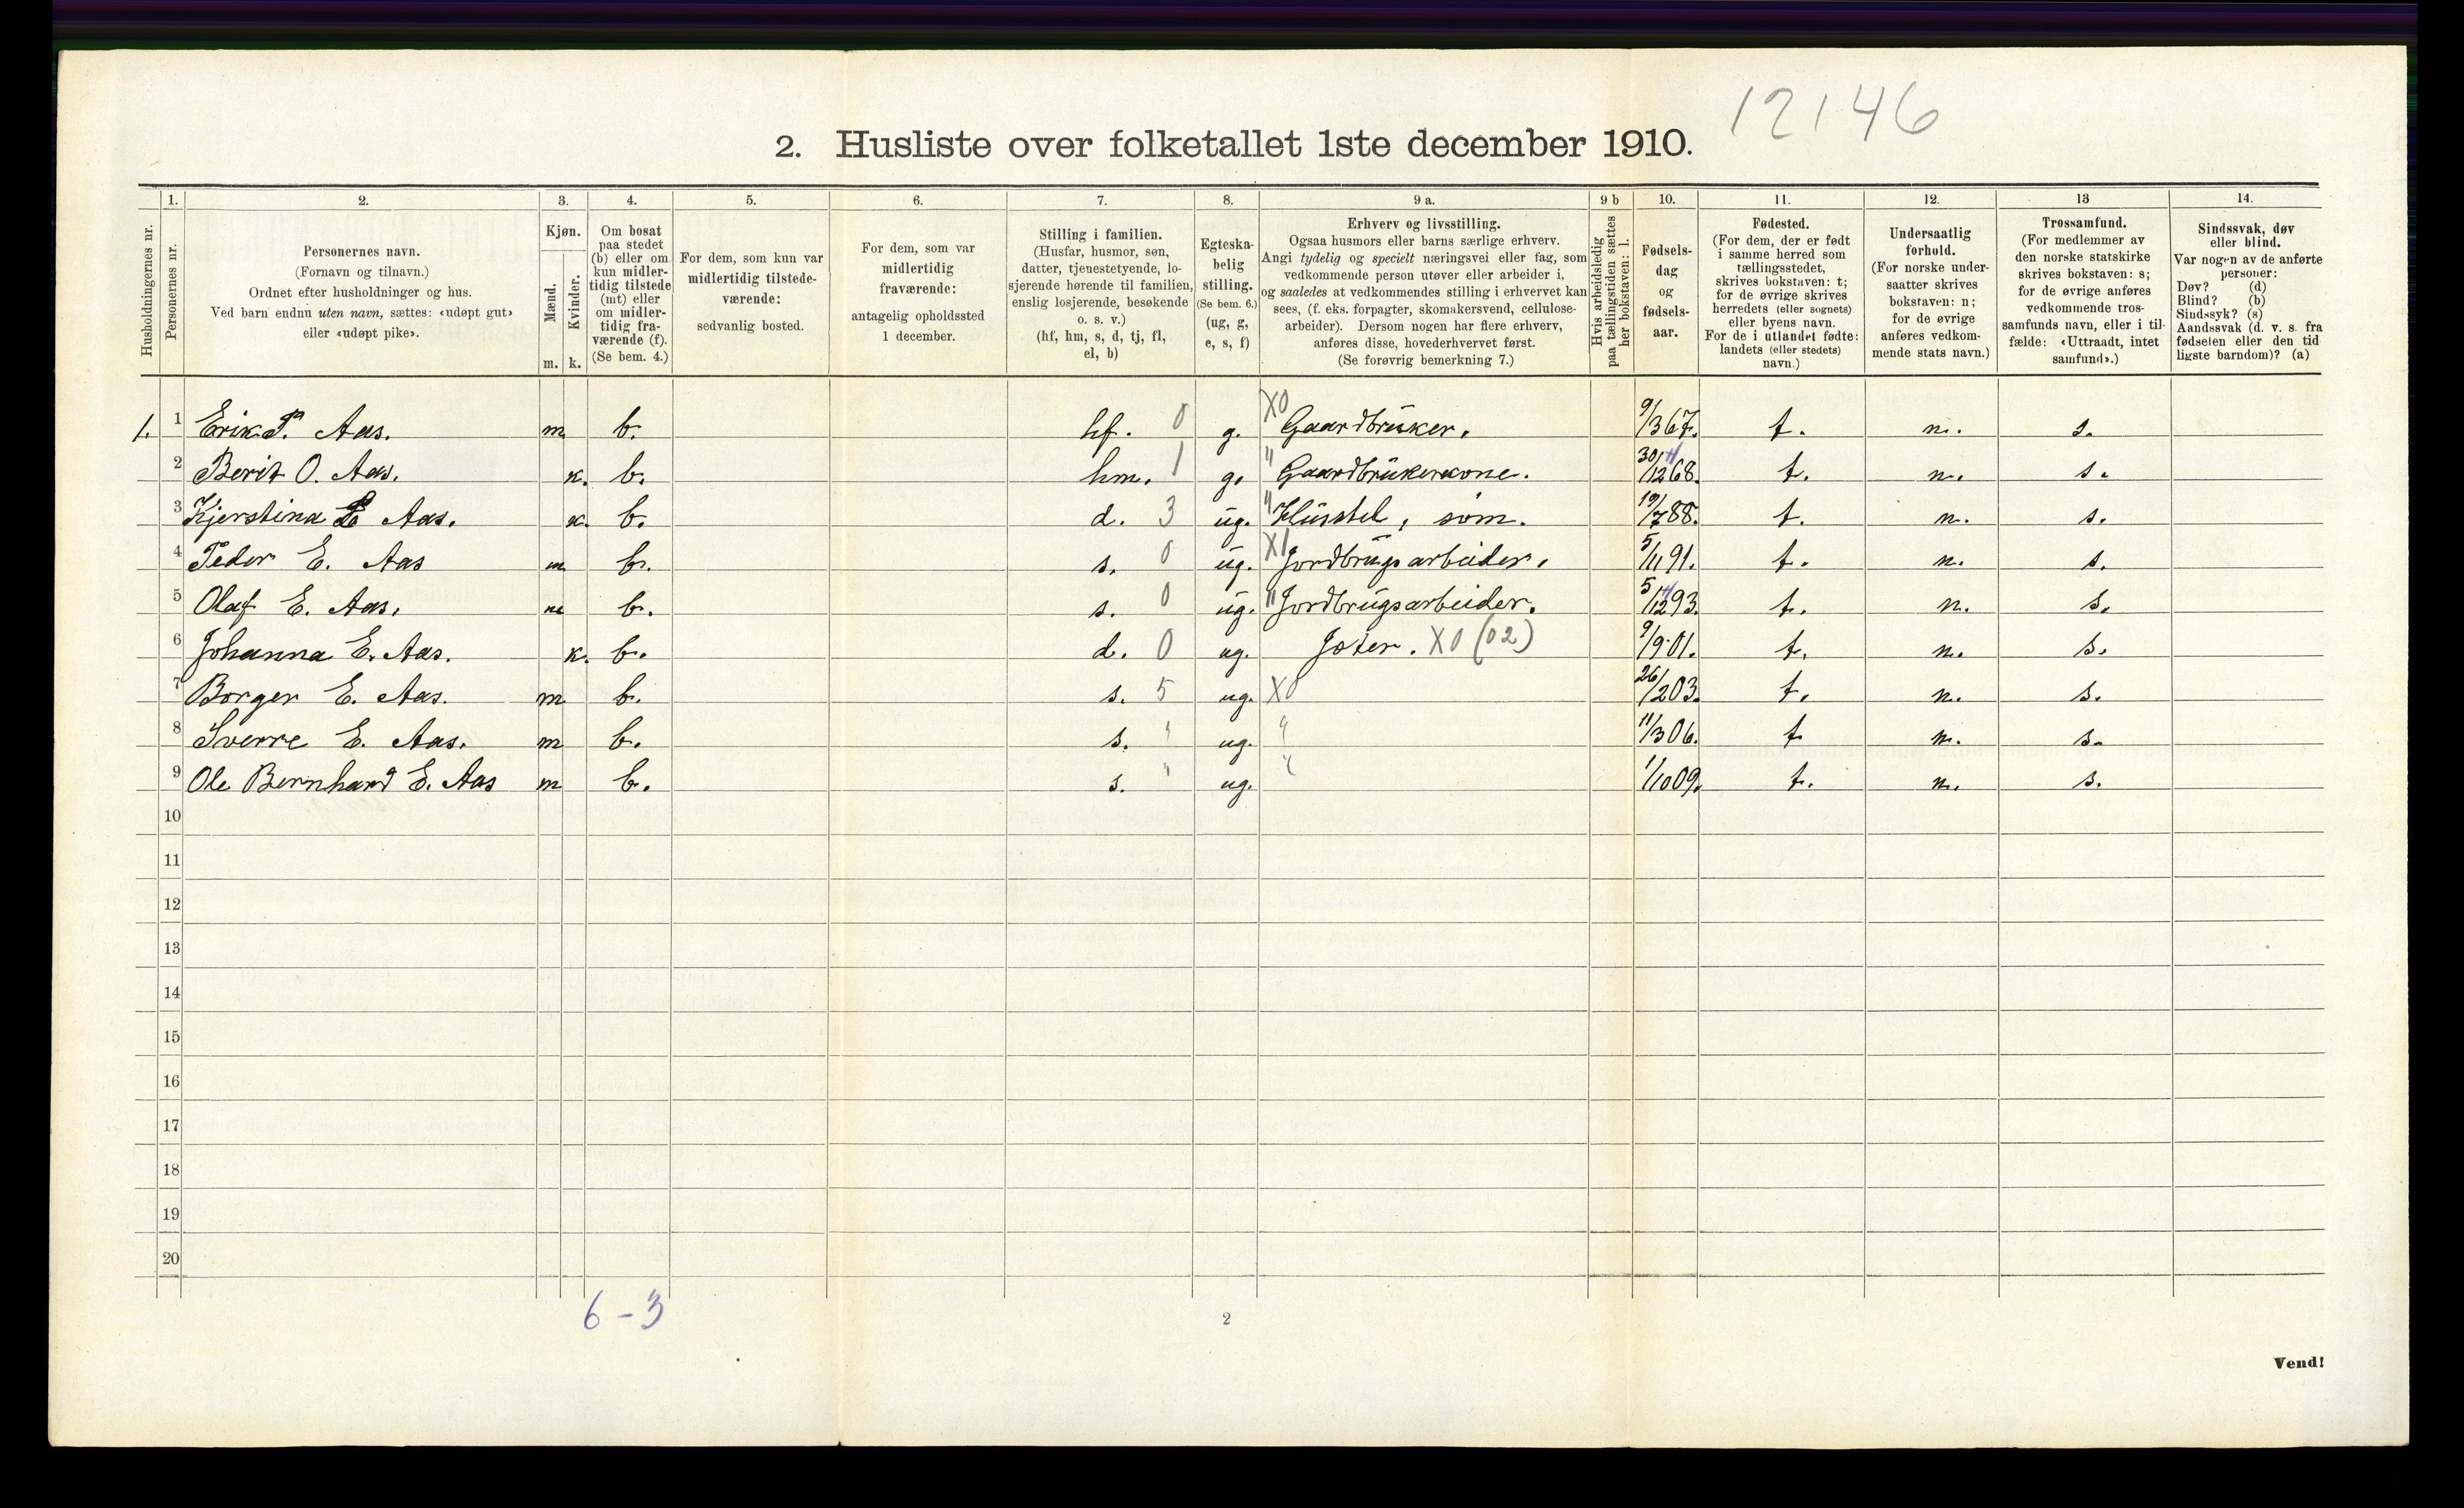 12146
2. Husliste over folketallet 1ste december 1910.
Husholdningernes nr.
1.
Personernes nr.
2.
Personernes navn.
(Fornavn og tilnavn.)
Ordnet efter husholdninger og hus.
Ved barn endnu uten navn, sættes: «udøpt gut»
eller «udøpt pike».
3.
Kjøn.
Mænd.
Kvinder.
m. k.
4.
Om bosat
paa stedet
(b) eller om
kun midler-
tidig tilstede
(mt) eller
om midler-
tidig fra-
værende (f).
(Se bem. 4.)
5.
For dem, som kun var
midlertidig tilstede-
værende:
sedvanlig bosted.
6.
For dem, som var
midlertidig
fraværende:
antagelig opholdssted
1 december.
7.
Stilling i familien.
(Husfar, husmor, søn,
datter, tjenestetyende, lo-
sjerende hørende til familien,
enslig losjerende, besøkende
o. s. v.)
(hf, hm, s, d, tj, fl,
el, b)
8.
Egteska-
belig
stilling.
(Se bem. 6.)
(ug, g,
e, s, f)
9 a.
Erhverv og livsstilling.
Ogsaa husmors eller barns særlige erhverv.
Angi tydelig og specielt næringsvei eller fag, som
vedkommende person utøver eller arbeider i,
og saaledes at vedkommendes stilling i erhvervet kan
sees, (f. eks. forpagter, skomakersvend, cellulose-
arbeider). Dersom nogen har flere erhverv,
anføres disse, hovederhvervet først.
(Se forøvrig bemerkning 7.)
9 b
Hvis arbeidsledig
paa tællingstiden sættes
her bokstaven: l.
10.
Fødsels-
dag
og
fødsels-
aar.
11.
Fødested.
(For dem, der er født
i samme herred som
tællingsstedet,
skrives bokstaven: t;
for de øvrige skrives
herredets (eller sognets)
eller byens navn.
For de i utlandet fødte:
landets (eller stedets)
navn.)
12.
Undersaatlig
forhold.
(For norske under-
saatter skrives
bokstaven: n;
for de øvrige
anføres vedkom-
mende stats navn.)
13
Trossamfund.
(For medlemmer av
den norske statskirke
skrives bokstaven: s;
for de øvrige anføres
vedkommende tros-
samfunds navn, eller i til-
fælde: «Uttraadt, intet
samfund».)
14.
Sindssvak, døv
eller blind.
Var nogen av de anførte
personer:
Døv? (d)
Blind? (b)
Sindssyk? (s)
Aandssvak (d. v. s. fra
fødselen eller den tid
ligste barndom)? (a)
1. 1 Erik P. Aas. m b. hf. 0 g. X0 Gaardbruker. 9/3 67. t. n. s.
2 Berit O. Aas. k. b. hm. 1 g. " Gaardbrukerkone. 30/12 68. t. n. s.
3 Kjerstina E Aas. k. b. d. 3 ug. " Husstel, søm. 19/7 88. t. n. s.
4 Peder E. Aas m b. s. 0 ug. X1 Jordbrugsarbeider. 5/11 91. t. n. s.
5 Olaf E. Aas. m b. s. 0 ug. " Jordbrugsarbeider. 5/12 93. t. n. s.
6 Johanna E. Aas. k. b. d. 0 ug. Jøter. X0 (02) 9/9 01. t. n. s.
7 Borger E. Aas. m b. s. 5 ug. X0 26/2 03. t. n. s.
8 Sverre E. Aas. m b. s. " ug. " 11/3 06. t n. s.
9 Ole Bernhard E. Aas m b. s. " ug. " 1/10 09. t. n. s.
10
11
12
13
14
15
16
17
18
19
20
6 - 3
2
Vend!